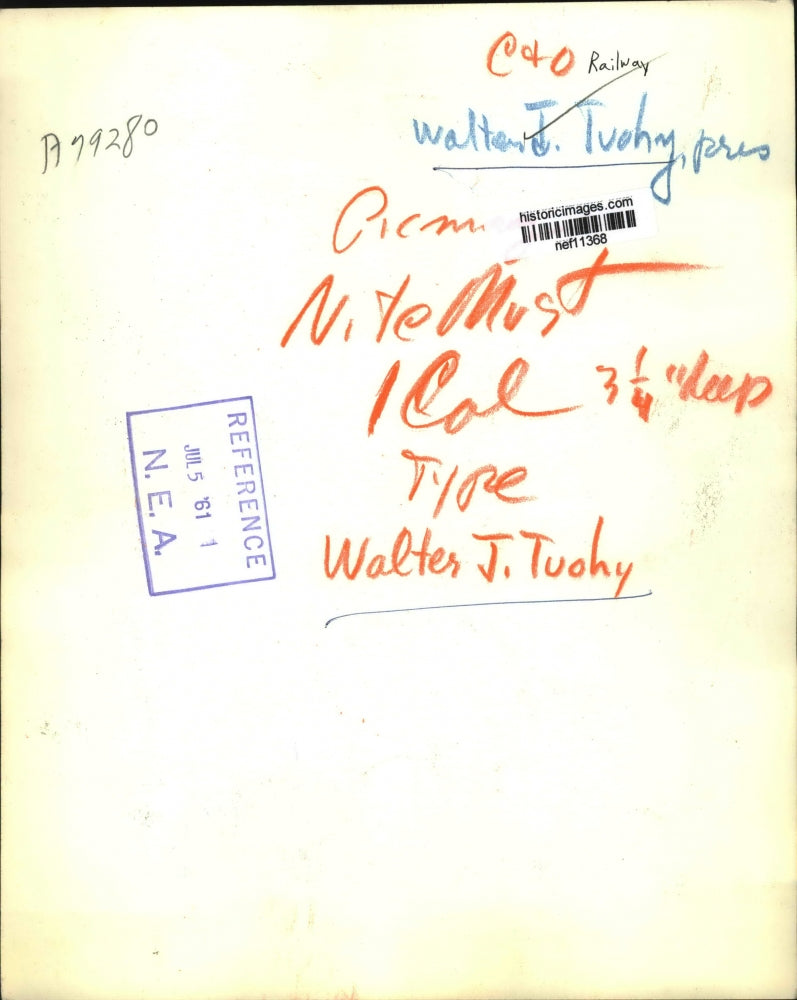 C&O Railway
Walter J. Tuohy, pres
A79280
historicimages.com
nef11368
Nite Must
1 Col 3 1/4" deep
Type
Walter J. Tuohy
REFERENCE
JUL 5 '61 1
N. E. A.